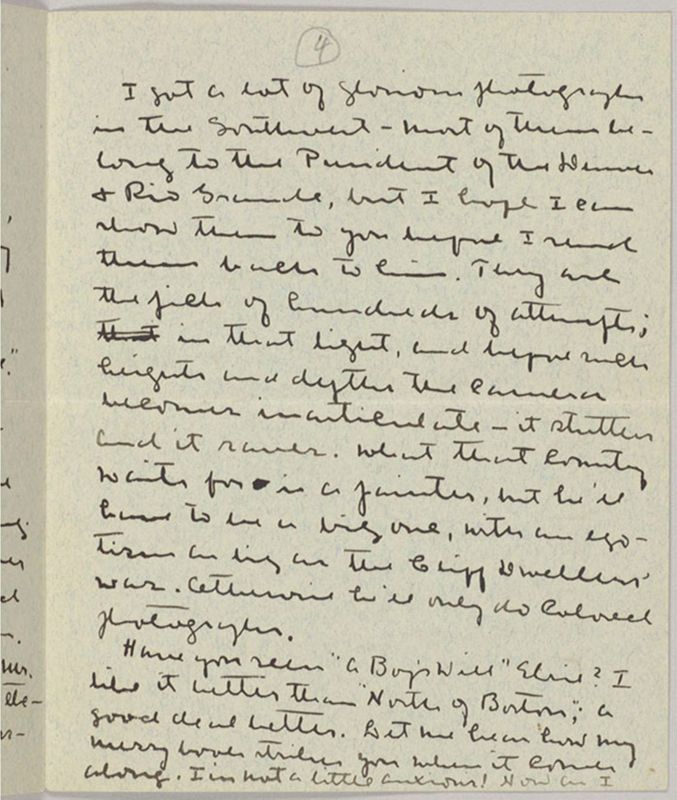 4
I got a lot of glorious photographs
in the Southwest - most of them be-
long to the President of the Denver
& Rio Grande, but I hope I can
show them to you before I send
them back to him. They are
the pick of hundreds of attempts;
that in that light, and before such
heights and depths the camera
becomes inarticulate - it stutters
and it raves. What that country
waits for is a painter, but he'll
have to be a big one, with an ego-
tism as big as the Cliff Dwellers'
was. Otherwise he'll only do Colored
photographs.
Have you seen "A Boy's Will" Elsie? I
like it better than "North of Boston"; a
good deal better. Let me hear how my
merry book strikes you when it comes
along. I'm not a little anxious! Now an I